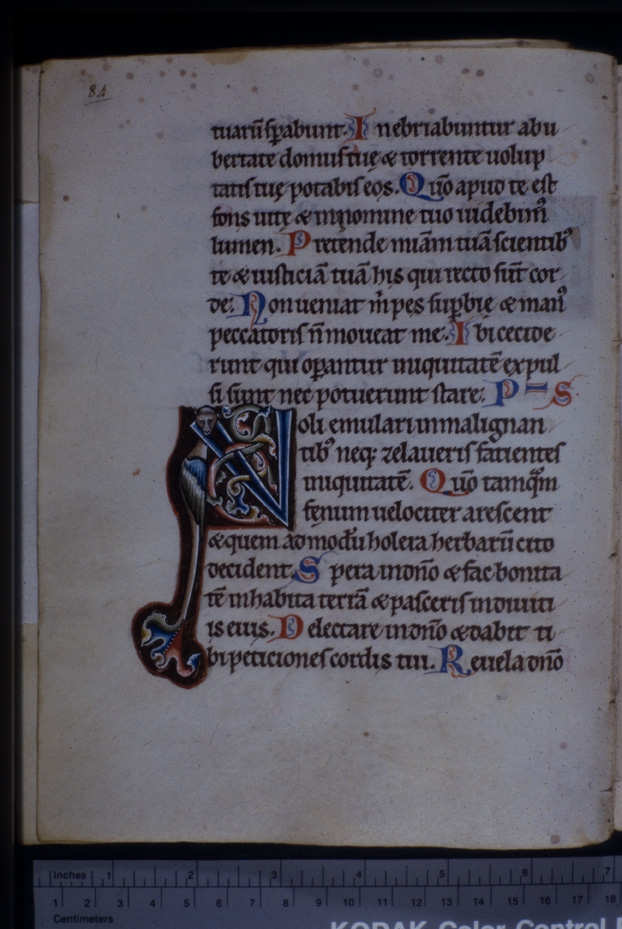 84
tuarū sꝑabunt. Inebriabuntur abu
bertate domus tuę & torrente uolup
tatis tuę potabis eos. Qūo apud te est
fons uitę & in nomine tuo uidebim᷒
lumen. Pretende miām tuā scientib᷒
te & iusticiā tuā his qui recto sūt cor
de. Non ueniat m̄ pes suꝑbię & man᷒
peccatoris n̄ moueat me. Ibi cecide
runt qui oꝑantur iniquitatē expul
si sunt nec potuerunt stare. P S
Noli emulari in malignan
tib᷒ neq; zelaueris facientes
iniquitatē. Qūo tamqͣm
fenum uelociter arescent
& quem admodū holera herbarū cito
decident. Spera in dn̄o & fac bonita
tē inhabita terrā & pasceris in diuiti
is eius. Delectare in dn̄o & dabit ti
bi peticiones cordis tui. Reuela dn̄o
Inches 1 2 3 4 5 6 7
1 2 3 4 5 6 7 8 9 10 11 12 13 14 15 16 17 18
Centimeters
KODAK Color Control